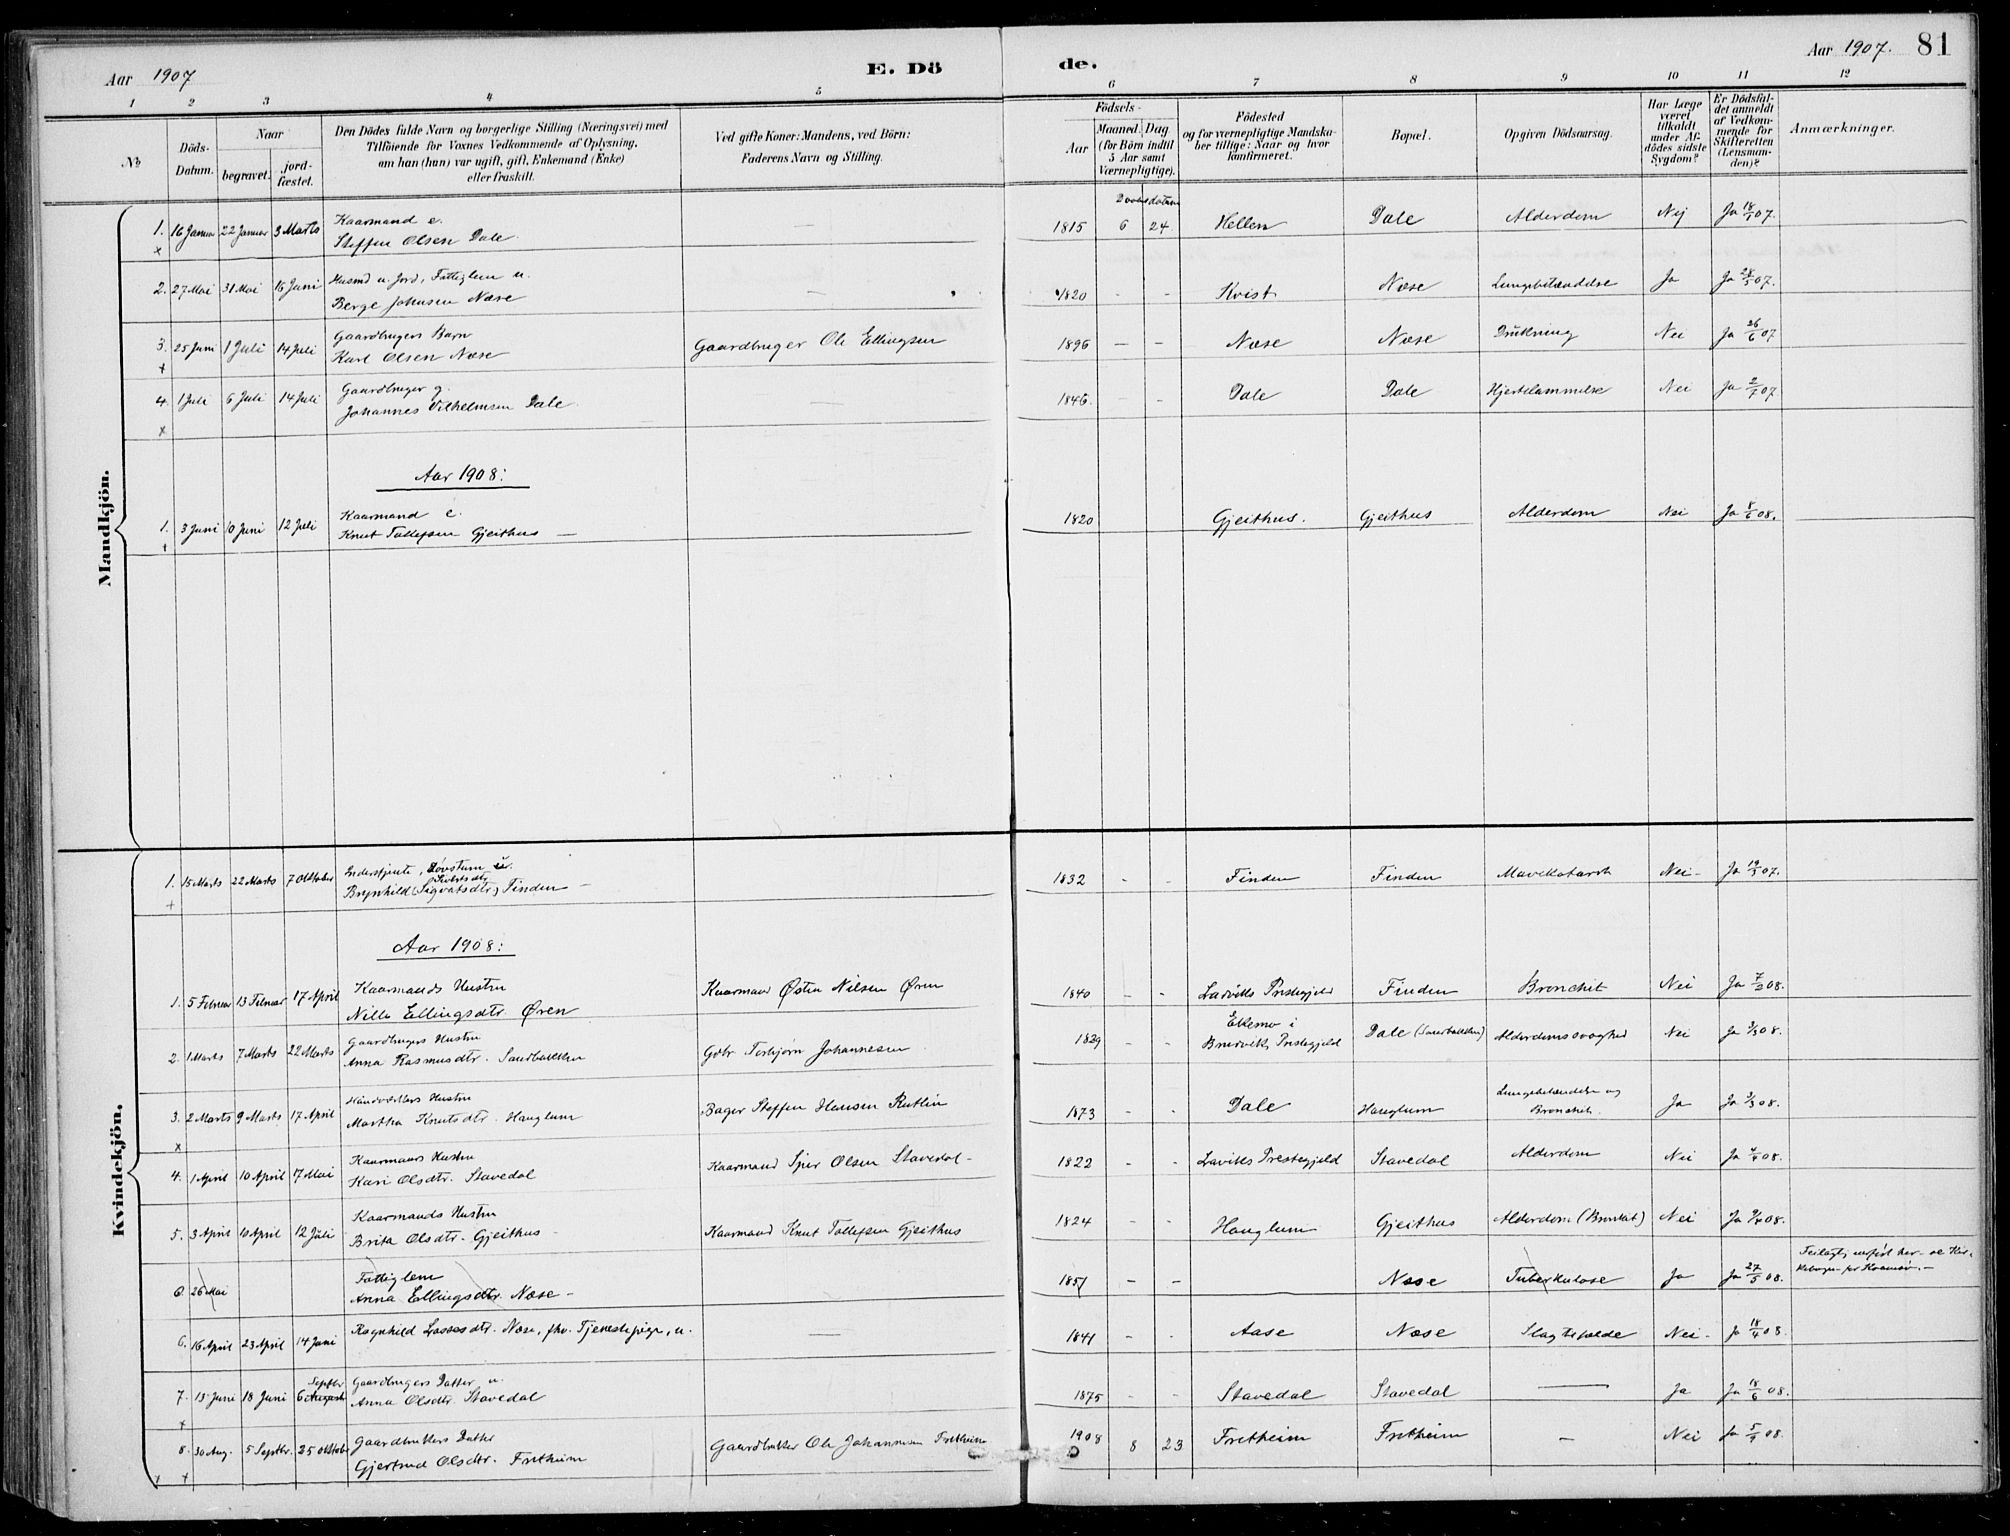 Aar 1907
E. Dö
de.
Aar 1907. 81
1 2 3 4 5 6 7 8 9 10 11 12
№
Döds-Datum.
Naar
begravet.
jord-fæstet.
Den Dödes fulde Navn og borgerlige Stilling (Næringsvei) med
Tilföiende for Voxnes Vedkommende af Oplysning,
om han (hun) var ugift, gift, Enkemand (Enke)
eller fraskilt.
Ved gifte Koner: Mandens, ved Börn:
Faderens Navn og Stilling.
Födsels-
Aar
Maaned. Dag
(for Börn indtil
5 Aar samt
Værnepligtige).
Födested
og for værnepligtige Mandska-
ber tillige: Naar og hvor
konfirmeret.
Bopæl.
Opgiven Dödsaarsag.
Har Læge
været
tilkaldt
under Af-
dödes sidste
Sygdom?
Er Dödsfal-
det anmeldt
af Vedkom-
mende for
Skifteretten
(Lensman-
den)?
Anmærkninger.
Mandkjön.
1. 16 Januar 22 Januar 3 Marts Kaarmand e.
Steffen Olsen Dale. — 1815 6 24 Hellem Dale Alderdom Nej Ja 18/1 07.
2. 27 Mai 31 Mai 16 Juni Husmd u. Jord, Fattiglem u.
Berge Johnsen Næse — 1820 - - Kvist Næse Lungebetændelse Ja Ja 28/5 07.
3. 25 Juni 1 Juli 14 Juli Gaardbrugers Barn
Karl Olsen Næse Gaardbruger Ole Ellingsen 1896 — — Næse Næse Drukning Nei Ja 26/6 07
4. 1 Juli 6 Juli 14 Juli Gaardbruger g.
Johannes Vilhelmsen Dale. 1846. - - Dale Dale Hjertelammelse Nei Ja 2/7 07
Aar 1908:
1. 3 Juni 10 Juni 12 Juli Kaarmand e.
Knut Tollefsen Gjeithus — 1820 Gjeithus. Gjeithus Alderdom Nei Ja 8/6 08.
Kvindekjön.
1. 15 Marts 22 Marts 7 Oktober Inderstjente, Døvstum u.
Sivertsdtr
Brynhild (Sigvatsdtr.) Finden — 1832 - - Finden Finden Mavekatarrh Nei - Ja 19/3 07.
Aar 1908:
1. 5 Februar 13 Februar 17 April Kaarmands Hustru
Nille Ellingsdtr. Øren Kaarmand Østen Nilsen Øren 1840 - - Laviks Prestegjeld Finden Bronchit Nei Ja 7/2 08.
2. 1 Marts 7 Marts 22 Marts Gaardbrugers Hustru
Anna Rasmusdtr. Sandbakken Gdbr Torbjørn Johannesen 1829 - - i
Prestegjeld Dale (Sandbakken) Alderdomssvaghed Nei Ja 08.
3. 2 Marts 9 Marts 17 April Haandverkers Hustru
Martha Knutsdtr. Hauglum Bager Steffen Hansen Rutlin 1873 - - Dale Hauglum Lungebetændelse og
Bronchit. Ja Ja 08.
4. 1 April 10 April 17 Mai Kaarmands Hustru
Kari Olsdtr. Stavedal Kaarmand Sjur Olsen Stavedal - 1822 - - Laviks Prestegjeld Stavedal Alderdom Nei Ja 08.
5. 3 April 10 April 12 Juli Kaarmands Hustru
Brita Olsdtr. Gjeithus Kaarmand Knut Tollefsen Gjeithus 1824 - - Hauglum Gjeithus Alderdom (Bronkit) Nei Ja 08.
6 26 Mai Fattiglem
Anna Ellingsdtr. Næse - 1851 — — Næse Tuberkulose Ja Ja 27/5 08. Feilagtig anført her -
6. 16 April 23 April 14 Juni Ragnhild Lassesdtr. Næse, fhv. Tjenestepige, u. — 1841 - - Aase Næse Slagtilfælde Nei - Ja 18/4 08.
7. 13 Juni 18 Juni 6 August Septbr Gaardbrugers Datter u.
Anna Olsdtr Stavedal 1875 - - Stavedal Stavedal — Ja Ja 18/6 08.
8. 30 Aug. 5 Septbr. 25 Oktober Gaardbrukers Datter
Gjertrud Olsdtr. Fretheim Gaardbruker Ole Johannesen Fretheim 1908 8 23 Fretheim Fretheim — Nei Ja 5/9 08.